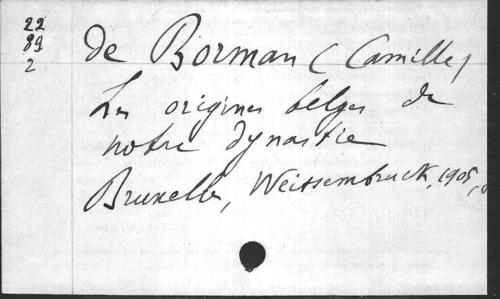 22
89
2
de Borman (Camille)
Les origines belges de
notre dynastie
Bruxelles, Weissenbruch, 1905,